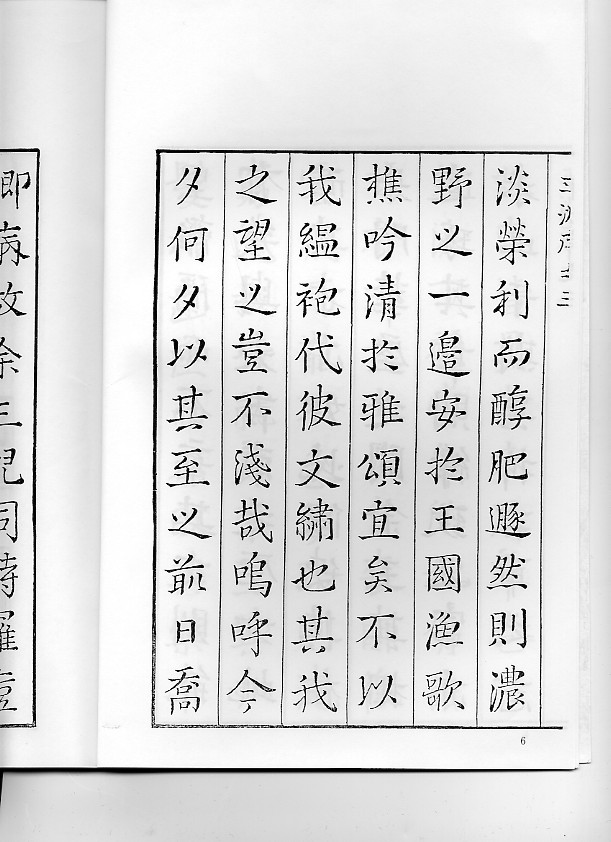 淡榮利而醇肥遯然則濃
野之一邉安於王國漁歌
樵吟清於雅頌宜矣不以
我縕袍代彼文繡也其我
之望之豈不淺哉嗚呼今
夕何夕以其至之前日喬
6
即病故余三兒同時羅